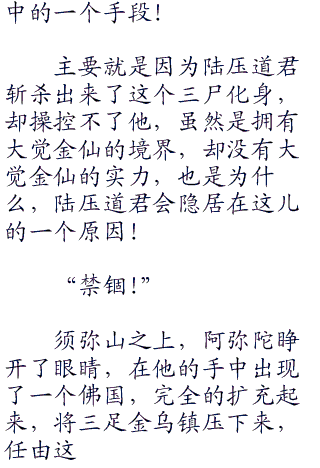 中的一个手段！
主要就是因为陆压道君
斩杀出来了这个三尸化身，
却操控不了他，虽然是拥有
大觉金仙的境界，却没有大
觉金仙的实力，也是为什
么，陆压道君会隐居在这儿
的一个原因！
“禁锢！”
须弥山之上，阿弥陀睁
开了眼睛，在他的手中出现
了一个佛国，完全的扩充起
来，将三足金乌镇压下来，
任由这